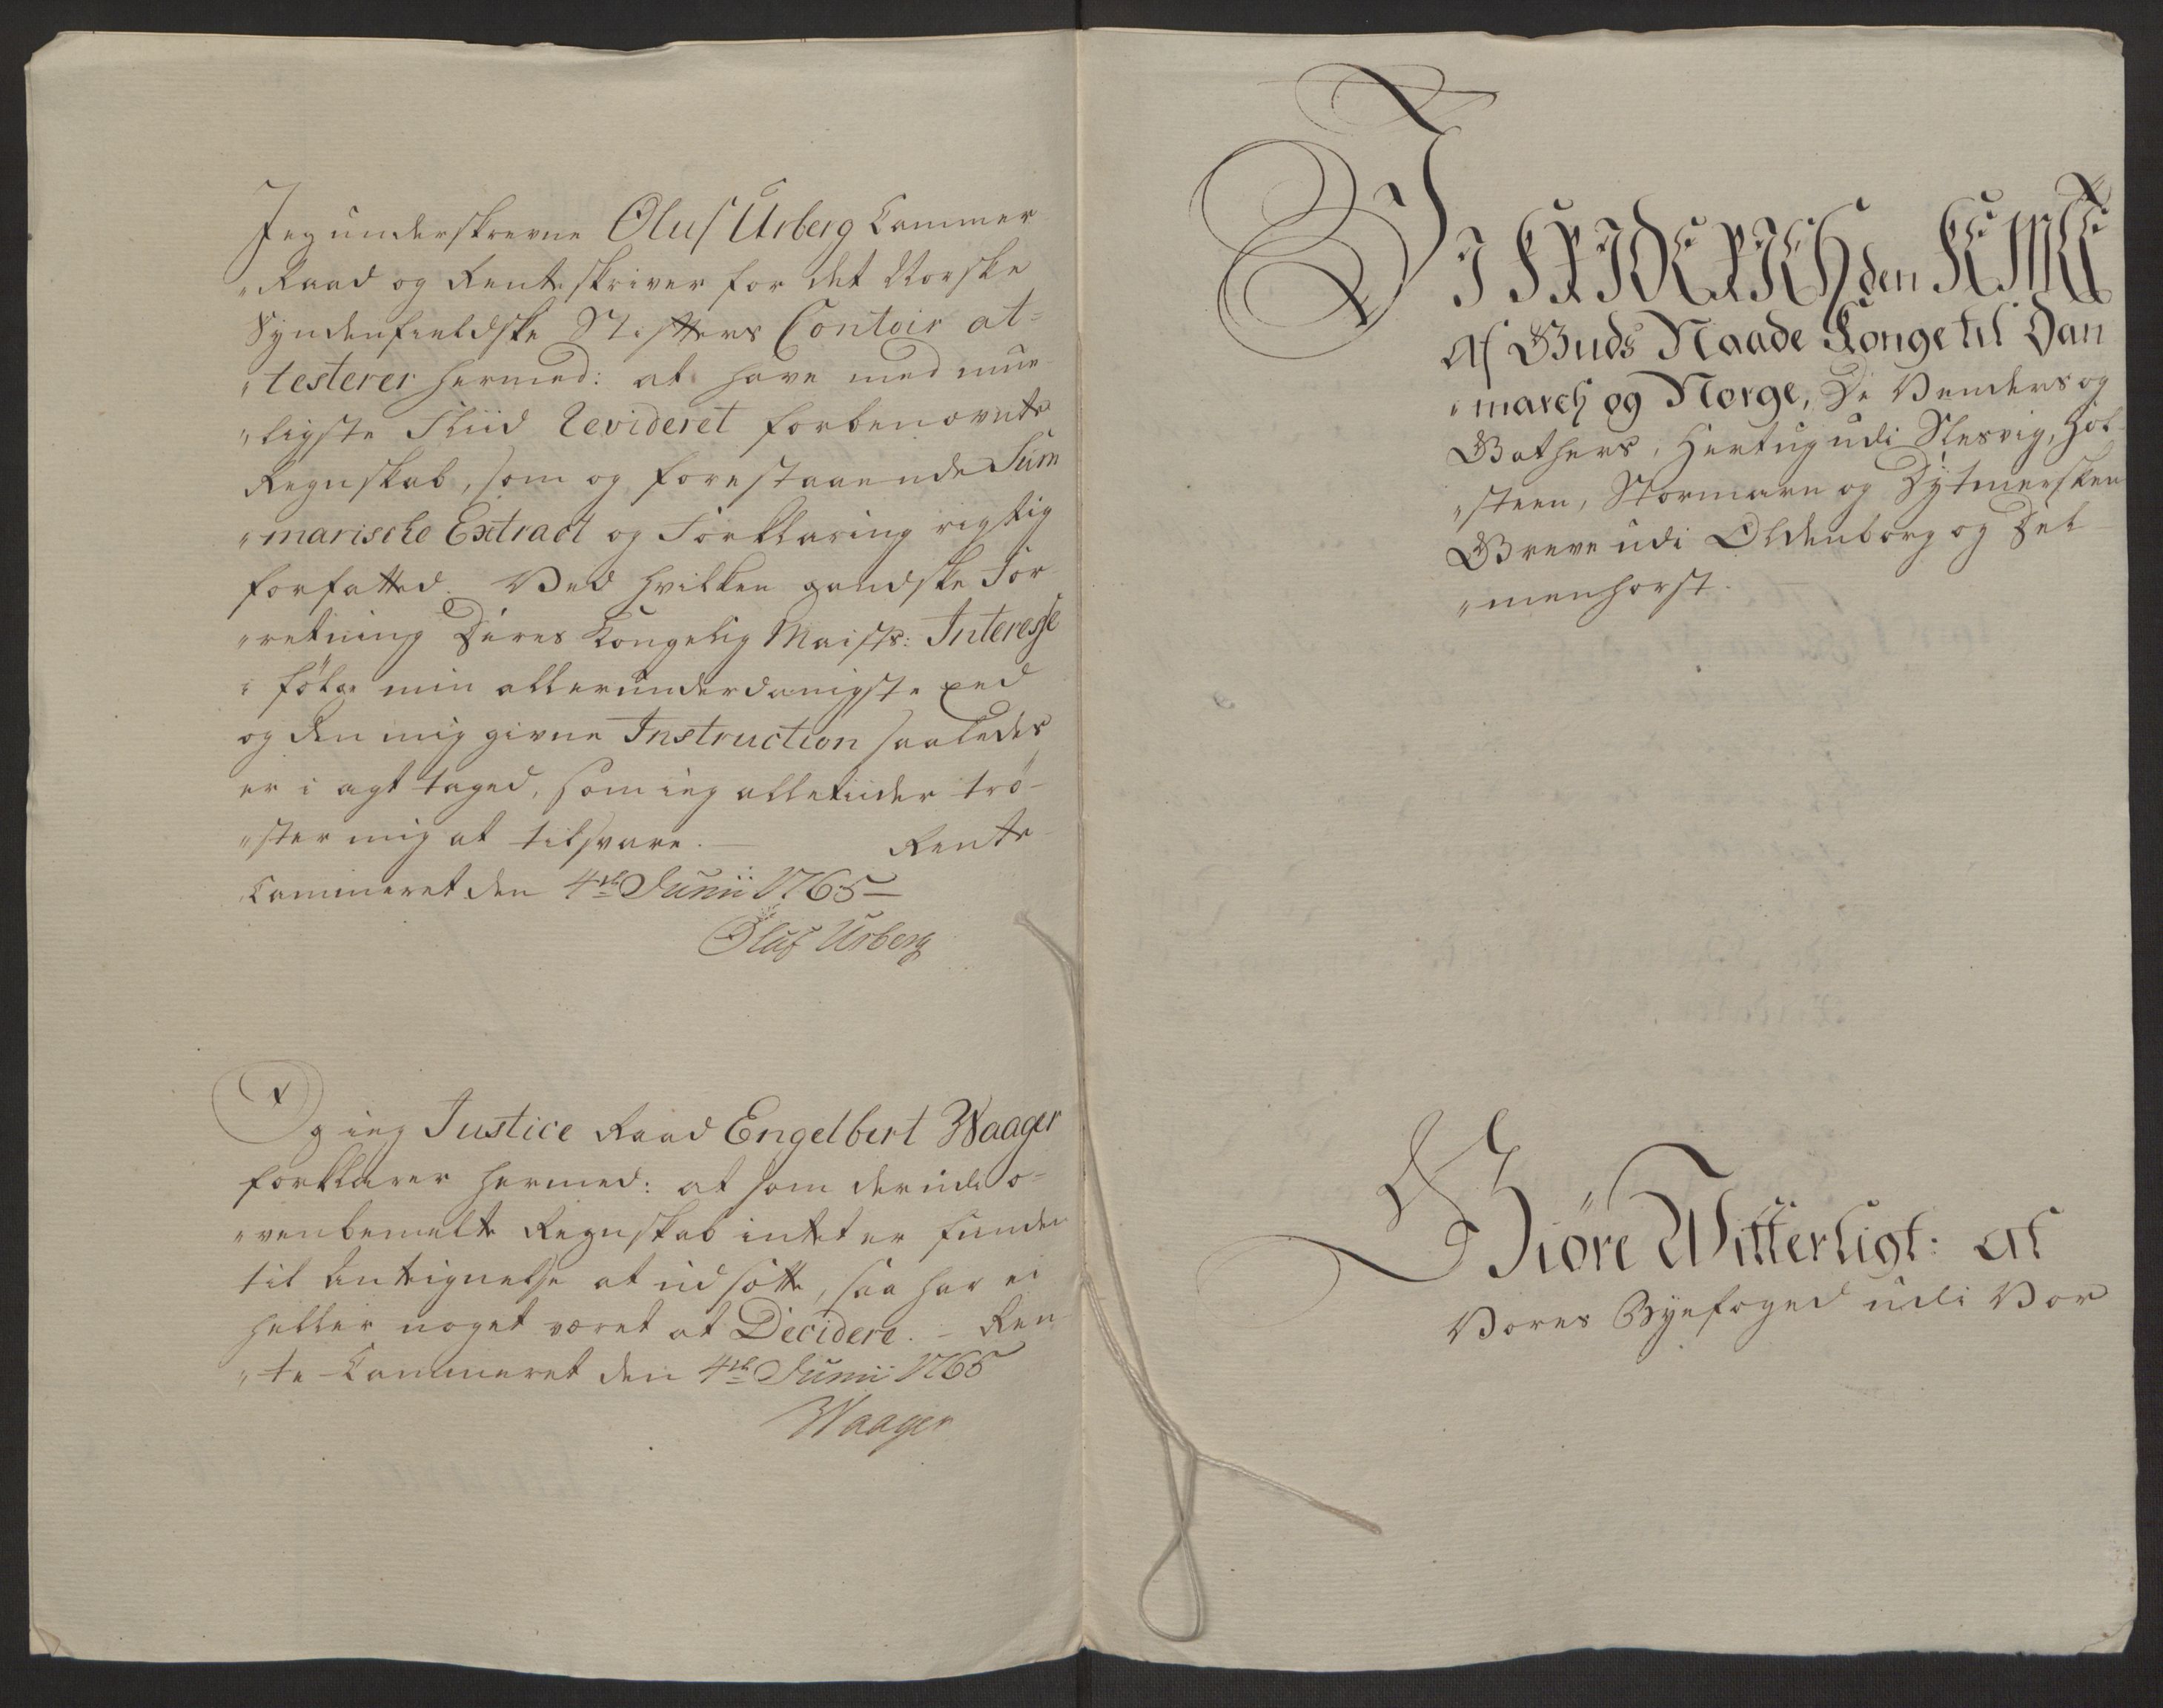 Jeg underskrevne Oluf Urberg Cammer
„Raad og Renteskriver for det Norske
Syndenfieldske Stifters Contoir at=
„testerer hermed: at have med mue
„ligste Fliid Revideret forbenævnte
Regnskab, som og forestaaende Sum
„marische Extract og Forklaring rigtig
forfatted. Ved hvilken gandske For
„retning Deres Kongelig Maists: Interesse
følge min allerunderdanigste Eed
og den mig givne Instruction saaledes
er i agt taged, som ieg alletiider trö-
„ster mig at tilsvare. — Rente
Cammeret den 4de Junii 1765 —
Oluf Urberg
Og ieg Justice Raad Engelbert Waager
forklarer hermed: at som derudi o=
„venbemelte Regnskab intet er funden
til Antegnelse at udsötte, saa har ei
heller noget været at Decidere. - Ren
„te-Cammeret den 4de Junii 1765
Waager
VI FRIDERICH den FEMTE
Af Guds Naade Konge til Dan
„march og Norge, De Venders og
Gothers, Hertug udi Slesvig, Hol
„steen, Stormarn og Dytmersken
Greve udi Oldenborg og Del
„menhorst.
Giöre Witterligt: At
Vores Byefoged udi Vor